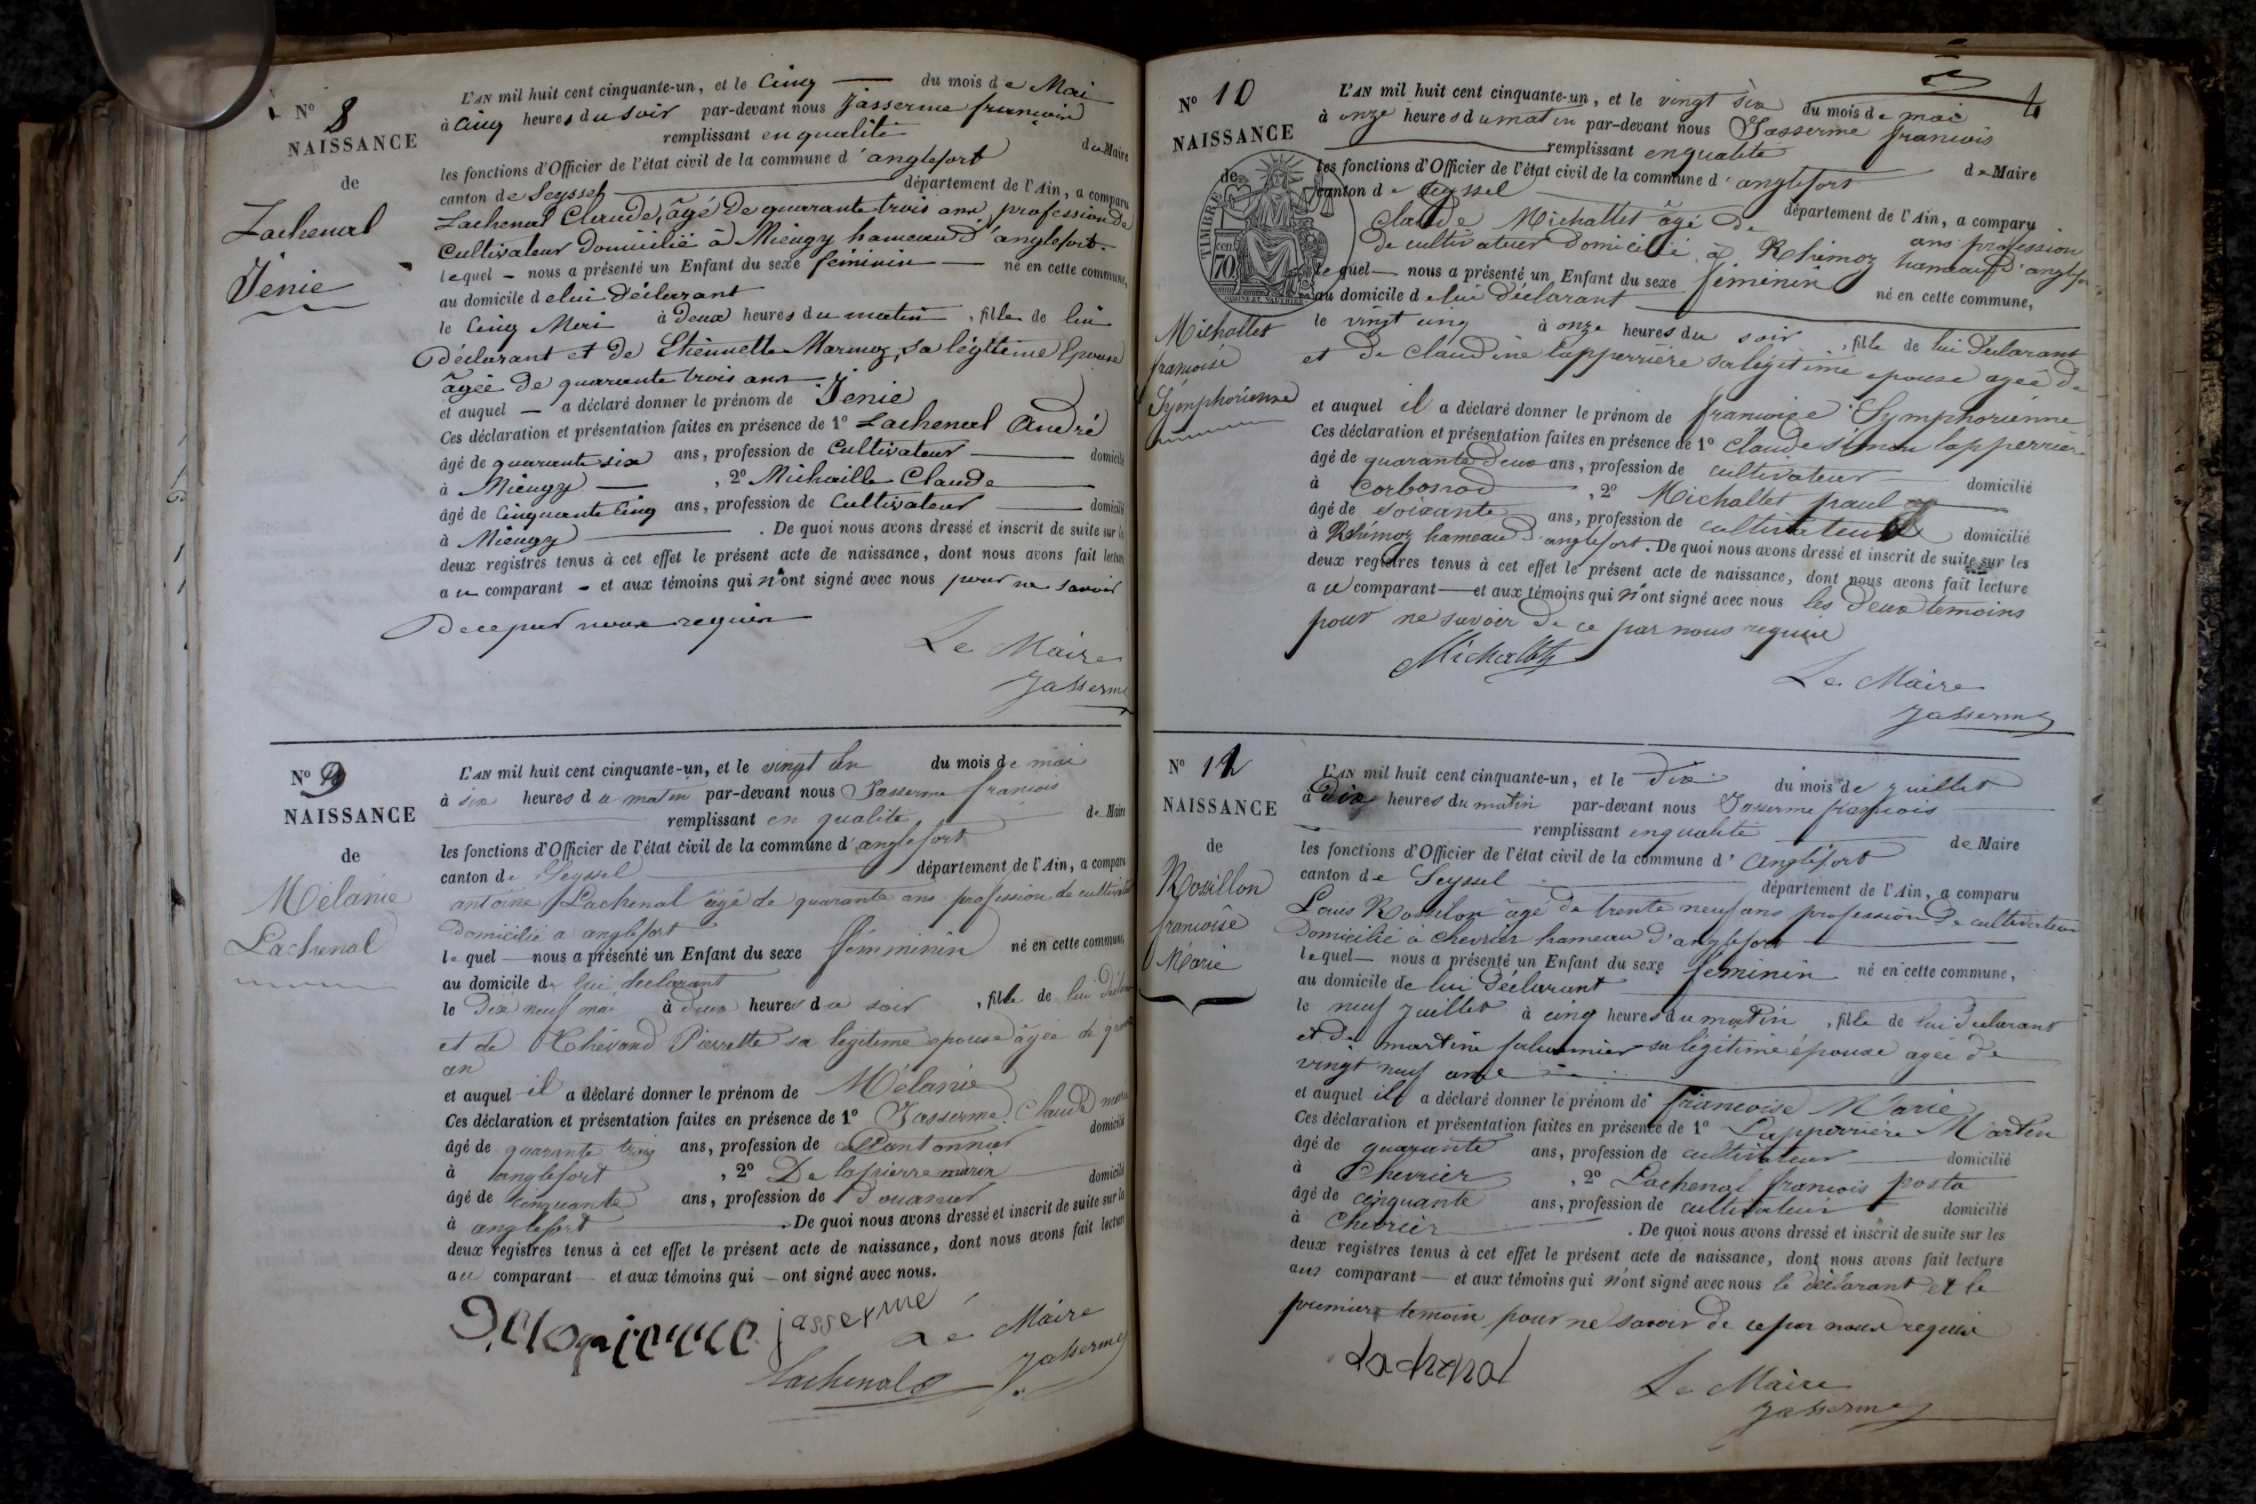 N° 8
NAISSANCE
de
Lachenal
Jenie
L'AN mil huit cent cinquante-un, et le Cinq du mois de Mai
à Cinq heures du soir par-devant nous Jasserme françois
remplissant en qualité de Maire
les fonctions d'Officier de l'état civil de la commune d'anglefort
canton de Seyssel département de l'Ain, a comparu
Lachenal Claude, âgé de quarante trois ans, profession de
Cultivateur domicilié à Mieugy hameau d'anglefort.
lequel nous a présenté un Enfant du sexe feminin né en cette commune,
au domicile de lui déclarant
le Cinq Mai à deux heures du matin, fille de lui
déclarant et de Etiennette Marmoz, sa légitime Epouse
âgée de quarante trois ans
et auquel a déclaré donner le prénom de Jenie
Ces déclaration et présentation faites en présence de 1° Lachenal André
âgé de quarante six ans, profession de Cultivateur domicilié
à Mieugy, 2° Michaille Claude
âgé de Cinquante Cinq ans, profession de Cultivateur domicilié
à Mieugy. De quoi nous avons dressé et inscrit de suite sur les
deux registres tenus à cet effet le présent acte de naissance, dont nous avons fait lecture
au comparant et aux témoins qui n'ont signé avec nous pour ne savoir
de ce par nous requis
Le Maire
Jasserme
N° 9
NAISSANCE
de
Mélanie
Lachenal
L'AN mil huit cent cinquante-un, et le vingt un du mois de mai
à six heures du matin par-devant nous Jasserme françois
remplissant en qualité de Maire
les fonctions d'Officier de l'état civil de la commune d'anglefort
canton de Seyssel département de l'Ain, a comparu
antoine Lachenal âgé de quarante ans profession de cultivateur
domicilié a anglefort
lequel nous a présenté un Enfant du sexe fémminin né en cette commune,
au domicile de lui declarant
le Dix neuf mai à deux heures du soir, fille de lui décla
et de Pierrette sa légitime epouse âgée de
an
et auquel il a déclaré donner le prénom de Mélanie
Ces déclaration et présentation faites en présence de 1° Jasserme Claude
âgé de quarante trois ans, profession de Cantonnier domicilié
à anglefort, 2° De lapierre marin
âgé de cinquante ans, profession de Douanier domicilié
à anglefort. De quoi nous avons dressé et inscrit de suite sur les
deux registres tenus à cet effet le présent acte de naissance, dont nous avons fait lecture
au comparant et aux témoins qui ont signé avec nous.
Delapierre jasserme
Le Maire
Lachenal Jasserme
N° 10
NAISSANCE
de
TIMBRE
70 cen
Michallet
francoise
Symphorienne
L'AN mil huit cent cinquante-un, et le vingt six du mois de mai
à onze heures du matin par-devant nous Jasserme francois
remplissant en qualité de Maire
les fonctions d'Officier de l'état civil de la commune d'anglefort
canton de Seyssel département de l'Ain, a comparu
Claude Michallet âgé de ans profession
de cultivateur domicilié à Rhémoz hameau d'anglefor
lequel nous a présenté un Enfant du sexe féminin né en cette commune,
au domicile de lui déclarant
le vingt cinq à onze heures du soir, fille de lui déclarant
et de claudine lapperrière sa légitime epouse agée de
et auquel il a déclaré donner le prénom de francoise Symphorienne
Ces déclaration et présentation faites en présence de 1° Claude simon lapperrier
âgé de quarante deux ans, profession de cultivateur domicilié
à Corbonod, 2° Michallet paul
âgé de soixante ans, profession de cultivateur domicilié
à Rhémoz hameau d'anglefort. De quoi nous avons dressé et inscrit de suite sur les
deux registres tenus à cet effet le présent acte de naissance, dont nous avons fait lecture
au comparant et aux témoins qui n'ont signé avec nous les deux temoins
pour ne savoir de ce par nous requis
Michallet
Le Maire
Jasserme
N° 11
NAISSANCE
de
Rossillon
francoise
Marie
L'AN mil huit cent cinquante-un, et le Dix du mois de juillet
à Dix heures du matin par-devant nous Jasserme francois
remplissant en qualité de Maire
les fonctions d'Officier de l'état civil de la commune d'Anglefort
canton de Seyssel département de l'Ain, a comparu
Louis Rossilon âgé de trente neuf ans profession de cultivateur
domicilié à chevrier hameau d'anglefort
lequel nous a présenté un Enfant du sexe féminin né en cette commune,
au domicile de lui déclarant
le neuf juillet à cinq heures du matin, fille de lui declarant
et de martine sa légitime épouse agée de
vingt neuf ans
et auquel il a déclaré donner le prénom de francoise Marie
Ces déclaration et présentation faites en présence de 1° Lapperrière Martin
âgé de quarante ans, profession de cultivateur domicilié
à Chevrier, 2° Lachenal francois posta
âgé de cinquante ans, profession de cultivateur domicilié
à Chevrier. De quoi nous avons dressé et inscrit de suite sur les
deux registres tenus à cet effet le présent acte de naissance, dont nous avons fait lecture
aux comparant et aux témoins qui n'ont signé avec nous le déclarant et le
premier temoin pour ne savoir de ce par nous requis
Lachenal
Le Maire
Jasserme